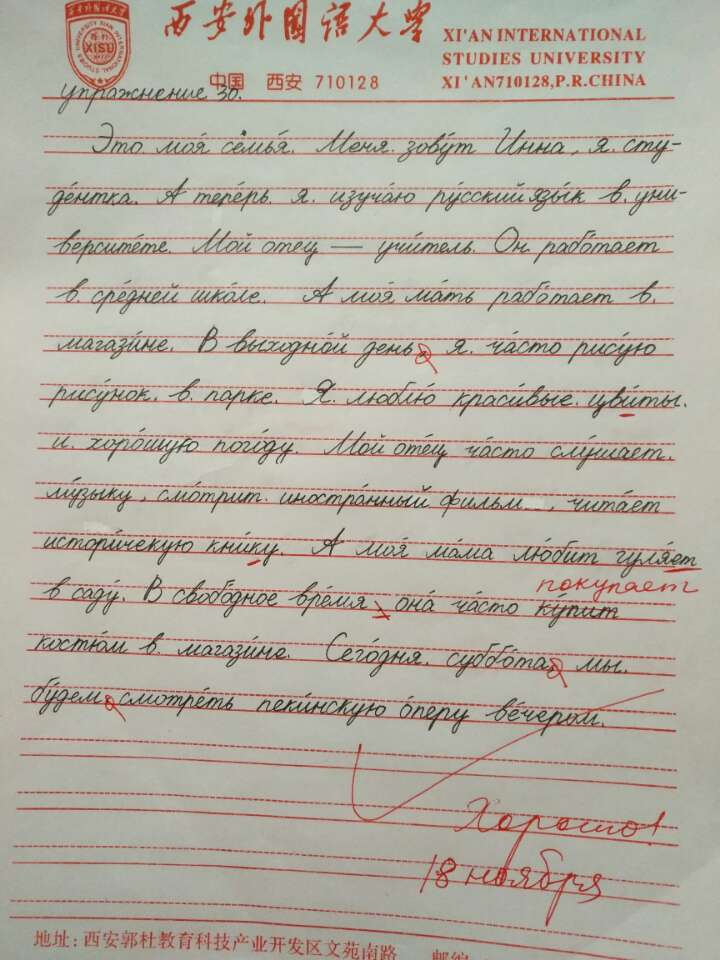 西安外国语大学
XI'AN INTERNATIONAL
STUDIES UNIVERSITY
中国 西安 710128
XI'AN710128,P.R.CHINA
XISU
упражнение 30.
Это моя́ семья́. Меня зову́т Инна, я сту-
де́нтка. А тепе́рь я изуча́ю ру́сский язы́к в уни-
версите́те. Мой оте́ц — учи́тель. Он рабо́тает
в сре́дней шко́ле. А моя́ ма́ть рабо́тает в
магази́не. В выходно́й день, я ча́сто рису́ю
рису́нок в парке. Я люблю́ краси́вые цви́ты
и хоро́шую пого́ду. Мой оте́ц ча́сто слу́шает
му́зыку, смо́трит иностра́нный фильм, чита́ет
истори́чекую кни́ку. А моя́ ма́ма лю́бит гуля́ет
покупает
в саду́. В свобо́дное вре́мя, она́ ча́сто ку́пит
костю́м в магази́не. Сего́дня суббо́та, мы
бу́дем смотре́ть пеки́нскую о́перу ве́чером.
Хорошо!
18 ноября
地址:西安郭杜教育科技产业开发区文苑南路 邮编